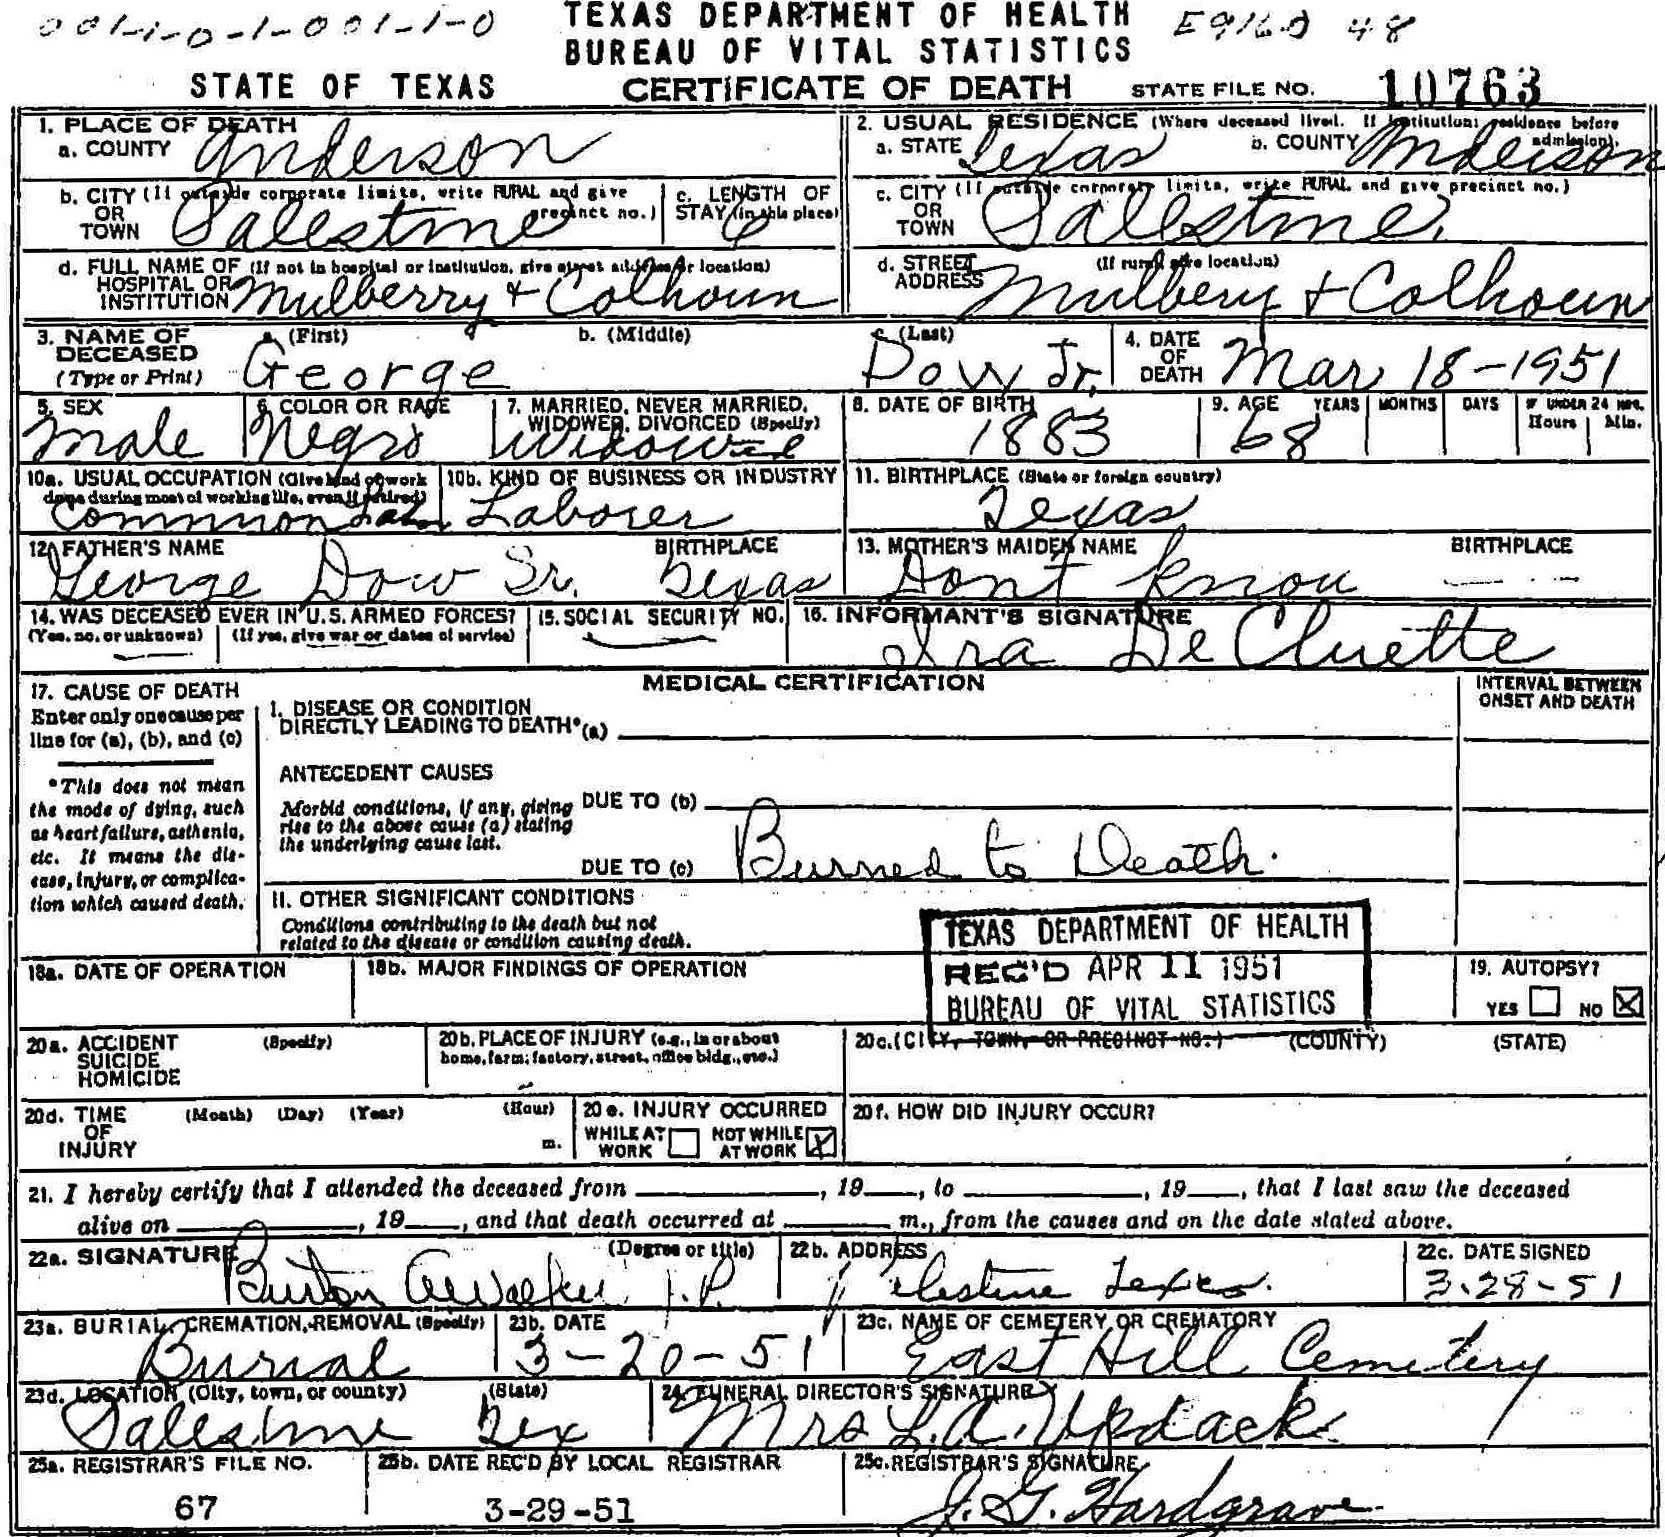 001-1-0-1-001-1-0
TEXAS DEPARTMENT OF HEALTH
E9160 48
BUREAU OF VITAL STATISTICS
STATE OF TEXAS CERTIFICATE OF DEATH STATE FILE NO. 10763
1. PLACE OF DEATH
a. COUNTY Anderson
2. USUAL RESIDENCE (Where deceased lived. If institution: residence before admission).
a. STATE Texas b. COUNTY Anderson
b. CITY (If outside corporate limits, write RURAL and give precinct no.)
OR
TOWN Palestine
c. LENGTH OF
STAY (in this place) 6
c. CITY (If outside corporate limits, write RURAL and give precinct no.)
OR
TOWN Palestine
d. FULL NAME OF (If not in hospital or institution, give street address or location)
HOSPITAL OR
INSTITUTION Mulberry + Calhoun
d. STREET (If rural give location)
ADDRESS Mulbery + Calhoun
3. NAME OF a. (First) b. (Middle) c. (Last)
DECEASED
(Type or Print) George Dow Jr.
4. DATE
OF
DEATH Mar 18-1951
5. SEX
Male
6. COLOR OR RACE
Negro
7. MARRIED, NEVER MARRIED,
WIDOWER, DIVORCED (Specify)
Widowed
8. DATE OF BIRTH
1883
9. AGE YEARS MONTHS DAYS IF UNDER 24 HRS.
Hours Min.
68
10a. USUAL OCCUPATION (Give kind of work
done during most of working life, even if retired)
Common Labor
10b. KIND OF BUSINESS OR INDUSTRY
Laborer
11. BIRTHPLACE (State or foreign country)
Texas
12. FATHER'S NAME BIRTHPLACE
George Dow Sr. Texas
13. MOTHER'S MAIDEN NAME BIRTHPLACE
Dont know
14. WAS DECEASED EVER IN U.S. ARMED FORCES?
(Yes, no, or unknown) (If yes, give war or dates of service)
15. SOCIAL SECURITY NO.
16. INFORMANT'S SIGNATURE
Ira De Cluette
MEDICAL CERTIFICATION
INTERVAL BETWEEN
ONSET AND DEATH
17. CAUSE OF DEATH
Enter only one cause per
line for (a), (b), and (c)
*This does not mean
the mode of dying, such
as heart failure, asthenia,
etc. It means the dis-
ease, injury, or complica-
tion which caused death.
I. DISEASE OR CONDITION
DIRECTLY LEADING TO DEATH* (a)
ANTECEDENT CAUSES
Morbid conditions, if any, giving
rise to the above cause (a) stating
the underlying cause last.
DUE TO (b)
DUE TO (c) Burned to Death.
II. OTHER SIGNIFICANT CONDITIONS
Conditions contributing to the death but not
related to the disease or condition causing death.
TEXAS DEPARTMENT OF HEALTH
REC'D APR 11 1951
BUREAU OF VITAL STATISTICS
18a. DATE OF OPERATION
18b. MAJOR FINDINGS OF OPERATION
19. AUTOPSY?
YES NO X
20a. ACCIDENT (Specify)
SUICIDE
HOMICIDE
20b. PLACE OF INJURY (e.g., in or about
home, farm, factory, street, office bldg., etc.)
20c. (CITY, TOWN, OR PRECINCT NO.) (COUNTY) (STATE)
20d. TIME (Month) (Day) (Year) (Hour)
OF
INJURY m.
20e. INJURY OCCURRED
WHILE AT WORK NOT WHILE AT WORK X
20f. HOW DID INJURY OCCUR?
21. I hereby certify that I attended the deceased from , 19 , to , 19 , that I last saw the deceased
alive on , 19 , and that death occurred at m., from the causes and on the date stated above.
22a. SIGNATURE (Degree or title)
Burton A Walker J.P.
22b. ADDRESS
Palestine Texas.
22c. DATE SIGNED
3-28-51
23a. BURIAL, CREMATION, REMOVAL (Specify)
Burial
23b. DATE
3-20-51
23c. NAME OF CEMETERY OR CREMATORY
East Hill Cemetery
23d. LOCATION (City, town, or county) (State)
Palestine Tex
24. FUNERAL DIRECTOR'S SIGNATURE
Mrs L.A. Updack
25a. REGISTRAR'S FILE NO.
67
25b. DATE REC'D BY LOCAL REGISTRAR
3-29-51
25c. REGISTRAR'S SIGNATURE
J. G. Hardgrave